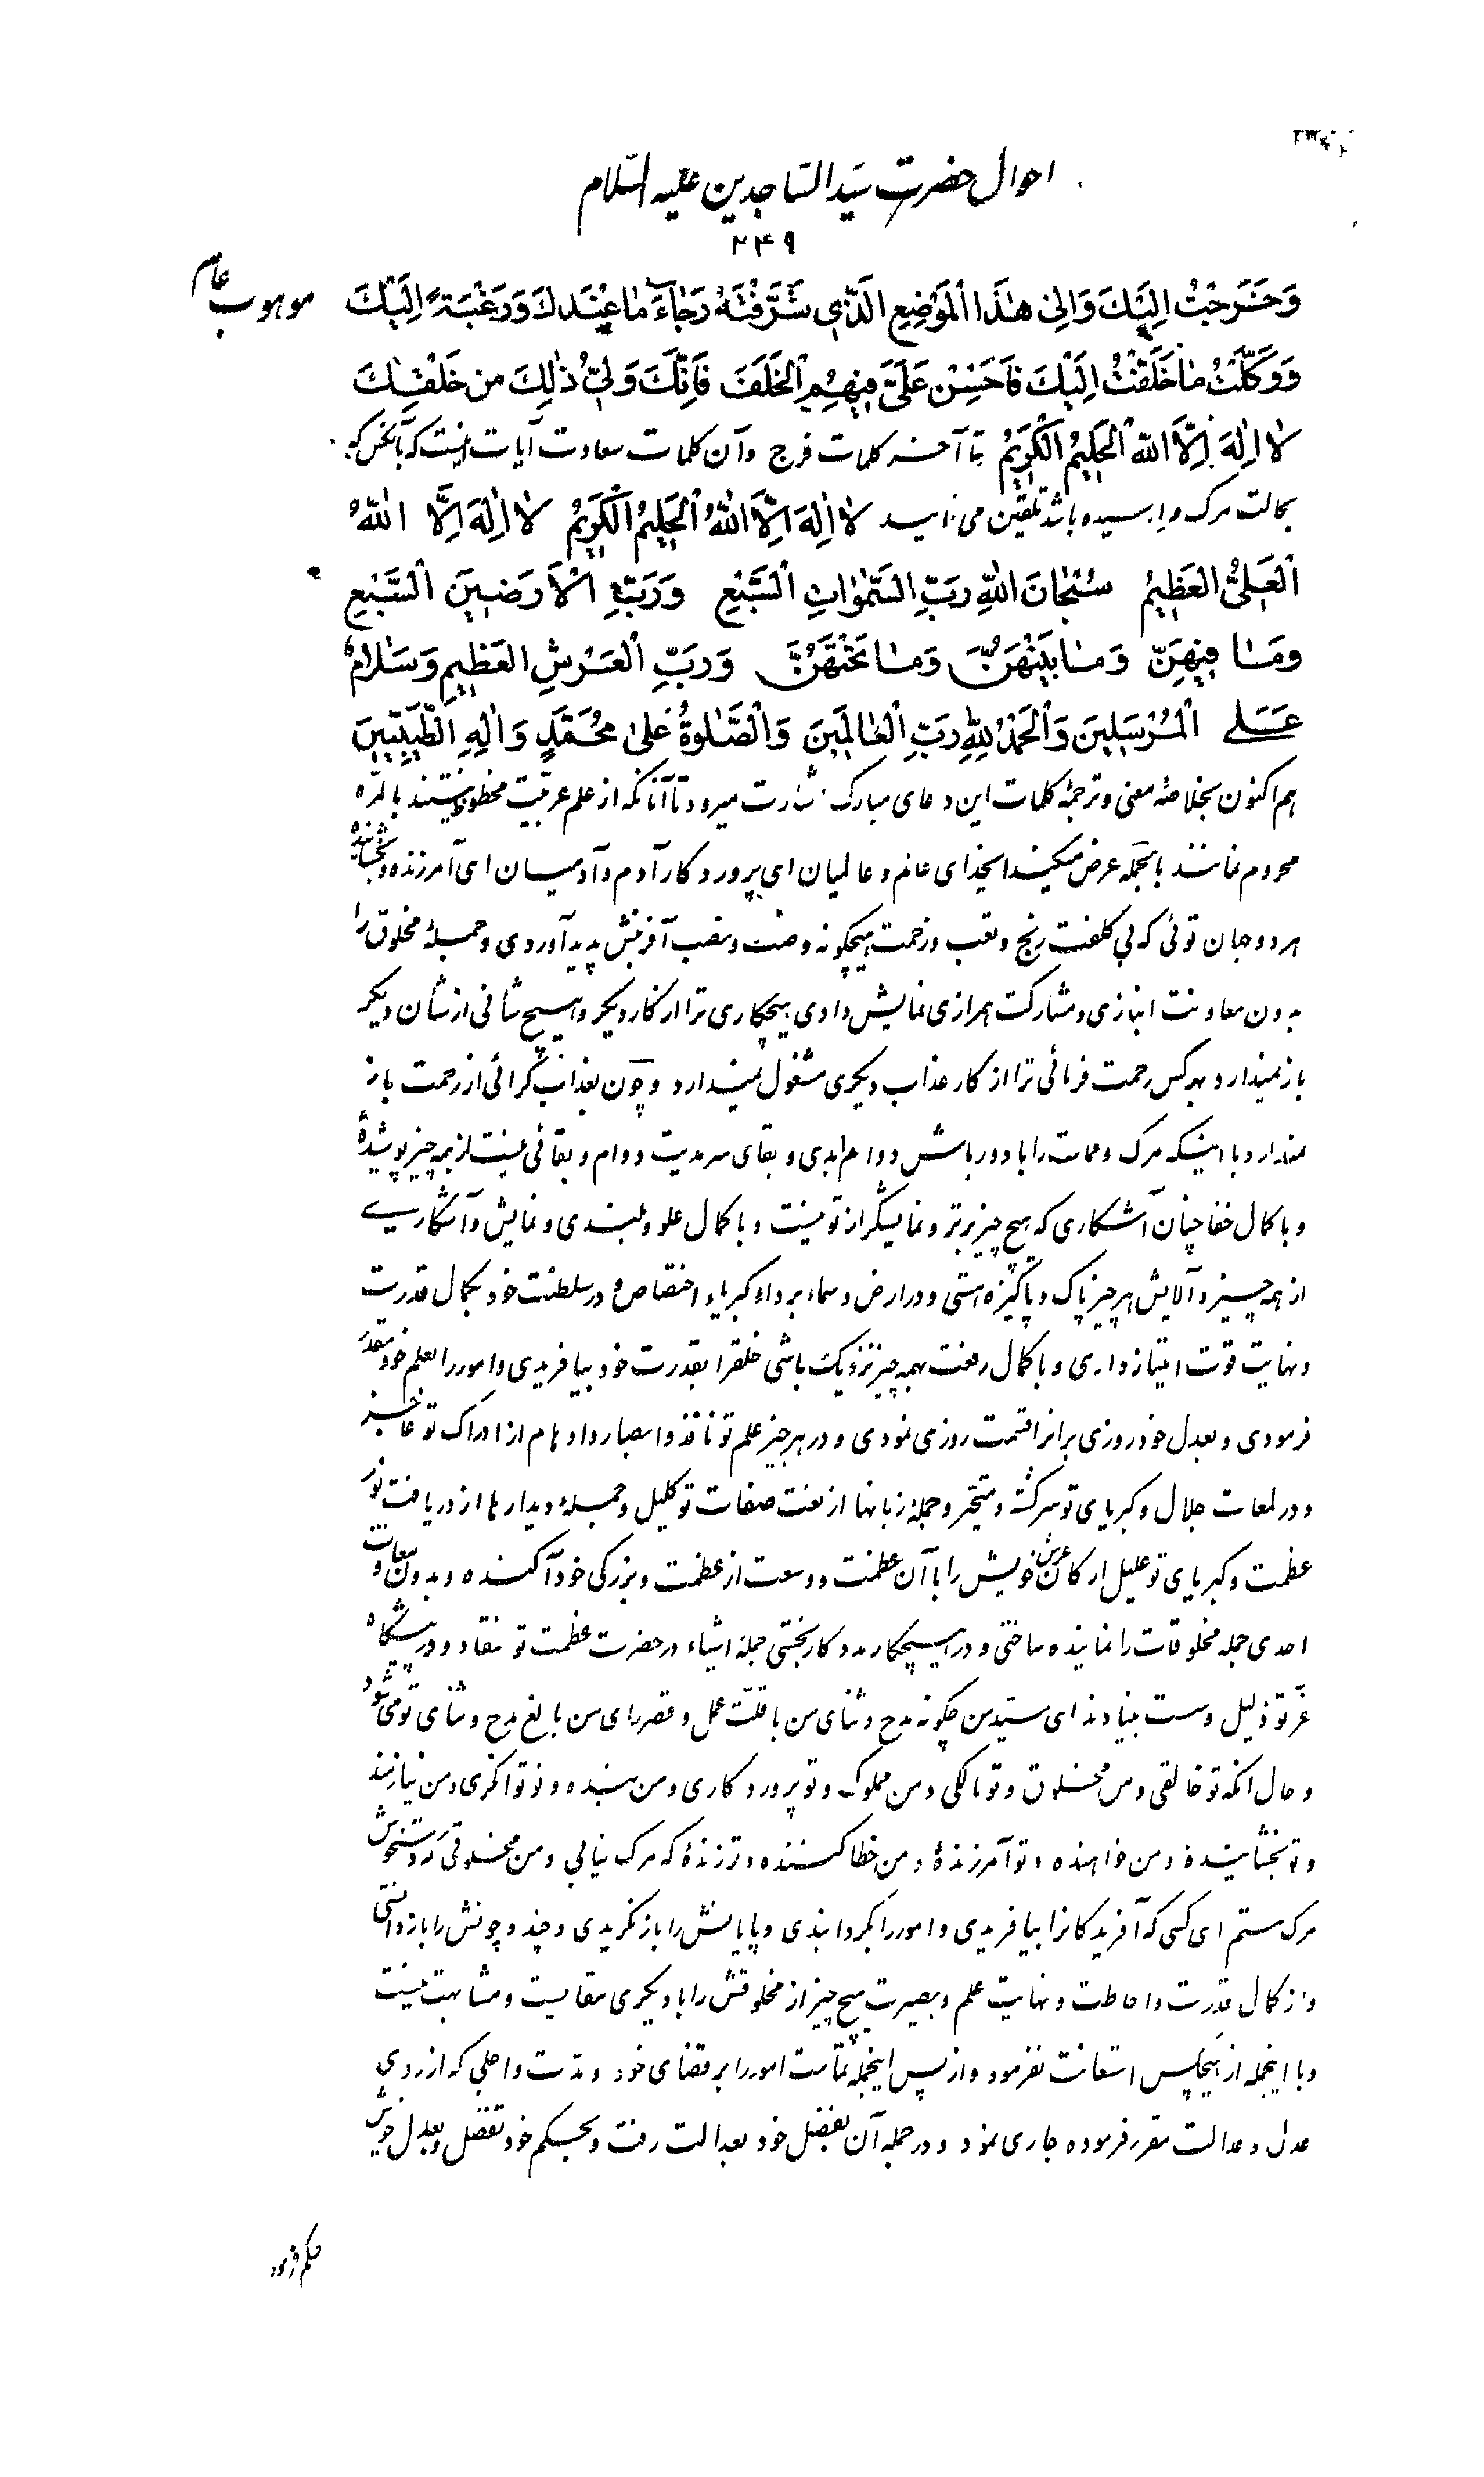 احوال حضرت سید الساجدین علیه السلام
۲۴۹
موهوب عام
وَخَرَجْتُ اِلَیْكَ وَاِلیٰ هٰذَا الْمَوْضِعِ الَّذی شَرَّفْتَهُ رَجٰاءَ مٰا عِنْدَكَ وَرَغْبَةً اِلَیْكَ
وَوَكَّلْتُ مٰا خَلَّفْتُ اِلَیْكَ فَاَحْسِنْ عَلَیَّ فیهِمِ الْخَلَفَ فَاِنَّكَ وَلِیُّ ذٰلِكَ مِن خَلْقِكَ
لاٰ اِلٰهَ اِلَّا اللّٰهُ الْحَلیمُ الْكَریمُ تا آخر كلمات فرج وآن كلمات سعادت آیات اینست كه بآنكس كه
بحالت مرك و رسیده باشد تلقین می نمایند لاٰ اِلٰهَ اِلَّا اللّٰهُ الْحَلیمُ الْكَریمُ لاٰ اِلٰهَ اِلَّا اللّٰهُ
الْعَلِیُّ الْعَظیمُ سُبْحٰانَ اللّٰهِ رَبِّ السَّمٰوٰاتِ السَّبْعِ وَرَبِّ الْاَرَضینَ السَّبْعِ
وَمٰا فیهِنَّ وَمٰا بَیْنَهُنَّ وَمٰا تَحْتَهُنَّ وَرَبِّ الْعَرْشِ الْعَظیمِ وَسَلٰامٌ
عَلَی الْمُرْسَلینَ وَالْحَمْدُ لِلّٰهِ رَبِّ الْعٰالَمینَ وَالصَّلٰوةُ عَلیٰ مُحَمَّدٍ وَاٰلِهِ الطَّیِّبینَ
هم اكنون بخلاصهٔ معنی وترجمهٔ كلمات این دعای مبارك اشارت میرود تا آنانكه از علم عربیّت محظوظ نیستند بالمرّه
محروم نمانند بالجمله عرض میكند ایخدای عالم و عالمیان ای پروردكار آدم و آدمیان ای آمرزنده و بخشایندهٔ
هر دو جهان توئی كه بی كلفت رنج و تعب و زحمت هیچكونه و نصب آفرینش پدید آوردی و جملهٔ مخلوق را
بدون معاونت انبازی و مشاركت همرازی نمایش دادی هیچكاری ترا از كار دیكر و هیچ شأنی از شأن دیكر
باز نمیدارد بهركس رحمت فرمائی ترا از كار عذاب دیكری مشغول نمیدارد و چون بعذاب كرائی از رحمت باز
نمیدارد با اینكه مرك و ممات را با دور باش دوام ابدی و بقای سرمدیت دوام و بقائی نیست از همه چیز پوشیدهٔ
و با كمال خفا چنان آشكاری كه هیچ چیز برتر و نمایشكر از تو نیست و با كمال علو و بلندی و نمایش و آشكاری
از همه چیز و آلایش هر چیز پاك و پاكیزه هستی و در ارض و سماء برداء كبریاء اختصاص و در سلطنت خود بكمال قدرت
و نهایت قوّت امتیاز داری و با كمال رفعت بهمه چیز نزدیك باشی خلق را بقدرت خود بیافریدی و امور را بعلم خود مقدّر
فرمودی و بعدل خود روزی برانرا قسمت روزی نمودی و در هر چیز علم تو نافذ و ابصار و اوهام از ادراك تو عاجز
و در لمعات جلال و كبریای تو سركشته و متحیّر و جملهٔ زبانها از نعت صفات تو كلیل و جملهٔ دیدارها از دریافت نور
عظمت و كبریای تو علیل اركان عرش خویش را با آن عظمت و وسعت از عظمت و بزركی خود آكنده و بدون معاونت
احدی جمله مخلوقات را نماینده ساختی و در هیچكار مددكار نجستی جملهٔ اشیاء در حضرت عظمت تو منقاد و در پیشكاه
عزّ تو ذلیل و ست بنیادند ای سیّد من چكونه مدح و ثنای من با قلّت عمل و قصر رای من بالغ مدح و ثنای تو می شود
و حال آنكه تو خالقی و من مخلوق و تو مالكی و من مملوك و تو پروردكاری و من بنده و تو توانكری و من نیازمند
و تو بخشایندهٔ و من خواهنده و تو آمرزندهٔ و من خطا كننده و تو زندهٔ كه مرك نیابی و من مخلوقی كه دستخوش
مرك هستم ای كسی كه آفریدكانرا بیافریدی و امور را بكردانیدی و پایانش را باز نكریدی و چند و چونش را باز دانستی
و از كمال قدرت و احاطت و نهایت علم و بصیرت هیچ چیز از مخلوقش را با دیكری مقایست و مشابهت نیست
و با اینجمله از هیچكس استعانت نفرمود و از پس اینجمله تمامت امور را بر قضای خود و مدّت و اجلی كه از روی
عدل و عدالت مقرر فرموده جاری نمود و در جمله آن بفضل خود بعدالت رفت و بحكم خود تفضل و بعدل خویش
حكم فرمود